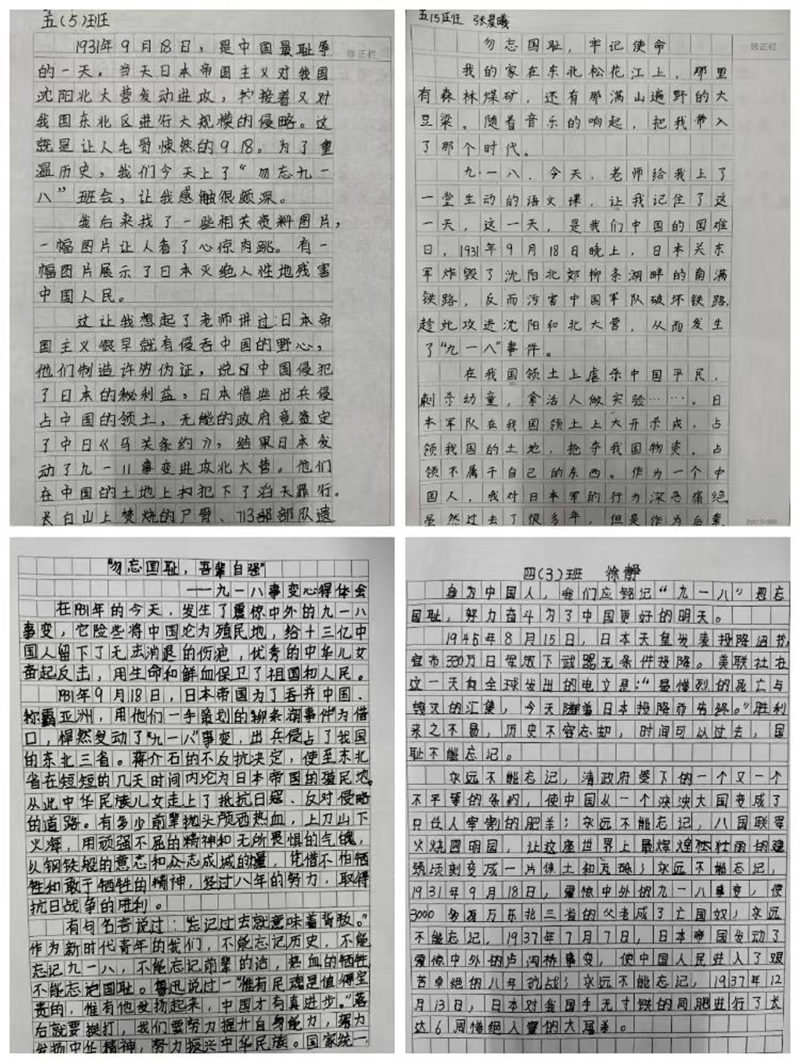 五(5)班
修正栏
1931年9月18日,是中国最耻辱
的一天,当天日本帝国主义对我国
沈阳北大营发动进攻,接着又对
我国东北区进行大规模的侵略。这
就是让人毛骨悚然的9.18。为了重
温历史,我们今天上了“勿忘九一
八”班会,让我感触很颇深。
我后来找了一些相关资料图片,
一幅图片让人看了心惊肉跳。有一
幅图片展示了日本灭绝人性地残害
中国人民。
这让我想起了老师讲过:日本帝
国主义很早就有侵吞中国的野心,
他们制造许穷伪证,说中国侵犯
了日本的秘利益,日本借此出兵侵
占中国的领土,无能的政府竟签定
了中日《马关条约》,结果日本发
动了九一八事变进攻北大营。他们
在中国的土地上犯下了滔天罪行。
长白山上焚烧的尸骨、713部部队遗
五(5)班 张晨曦
修正栏
勿忘国耻,牢记使命
我的家在东北松花江上,那里
有森林煤矿,还有那满山遍野的大
豆粱。随着音乐的响起,把我带入
了那个时代。
九·一八,今天,老师给我上了
一堂生动的语文课,让我记住了这
一天,这一天,是我们中国的国难
日,1931年9月18日晚上,日本关东
军炸毁了沈阳北郊柳条湖畔的南满
铁路,反而污害中国军队破坏铁路,
趁此攻进沈阳和北大营,从而发生
了“九一八”事件。
在我国领土上虐杀中国平民,
刺杀幼童,拿活人做实验……。日
本军队在我国领土上大开杀戒,占
领我国的土地,抢夺我国物资,占
领不属于自己的东西。作为一个中
国人,我对日本军的行为深恶痛绝,
虽然过去了很多年,但是作为后辈
“勿忘国耻,吾辈自强”
——九一八事变心得体会
在1931年的今天,发生了震惊中外的九一八
事变,它险些将中国沦为殖民地,给十三亿中
国人留下了无法消退的伤疤,优秀的中华儿女
奋起反击,用生命和鲜血保卫了祖国和人民。
1931年9月18日,日本帝国为了吞并中国、
称霸亚洲,用他们一手策划的柳条湖事件为借
口,悍然发动了“九一八”事变,出兵侵占了我国
的东北三省。蒋介石的不反抗决定,使至东北
省在短短的几天时间内沦为日本帝国的殖民地。
从此中华民族儿女走上了抵抗日寇、反对侵略
的道路。有多少前辈抛头颅洒热血,上刀山下
火海,用顽强不屈的精神和无所畏惧的气魄,
以钢铁般的意志和众志成城的力量,凭借不怕牺
牲和敢于牺牲的精神,经过八年的努力,取得
抗日战争的胜利。
有句名言说过:“忘记过去就意味着背叛。”
作为新时代青年的我们,不能忘记历史,不能
忘记九一八,不能忘记前辈的浴热血的牺牲
不能忘记国耻。鲁迅说过一“惟有民魂是值得宝
贵的,惟有他发扬起来,中国才有真进步。”落
后就要挨打,我们要努力提升自身能力,努力
发扬中华精神,努力振兴中华民族。国家统一
四(3)班 徐静
身为中国人,我们应铭记“九一八”勿忘
国耻,努力奋斗为了中国更好的明天。
1945年8月15日,日本天皇发表投降诏书,
宣布330万日军放下武器无条件投降。美联社在
这一天向全球发出的电文是:“最惨烈的死亡与
毁灭的汇集,今天随着日本投降而告终。”胜利
来之不易,历史不容忘却,时间可以过去,国
耻不能忘记。
永远不能忘记,清政府签下的一个又一个
不平等的条约,使中国从一个泱泱大国变成了
只任人宰割的肥羊;永远不能忘记,八国联军
火烧圆明园,让这座世界上最辉煌壮丽的建
筑顷刻变成一片焦土和瓦砾;永远不能忘记,
1931年9月18日,震惊中外的九一八事变,使
3000多万东北三省的父老成了亡国奴;永远
不能忘记,1937年7月7日,日本帝国发动了
震惊中外的卢沟桥事变,使中国人民进入了艰
苦卓绝的八年抗战;永远不能忘记,1937年12
月13日,日本对我国手无寸铁的同胞进行了长
达6周惨绝人寰的大屠杀。